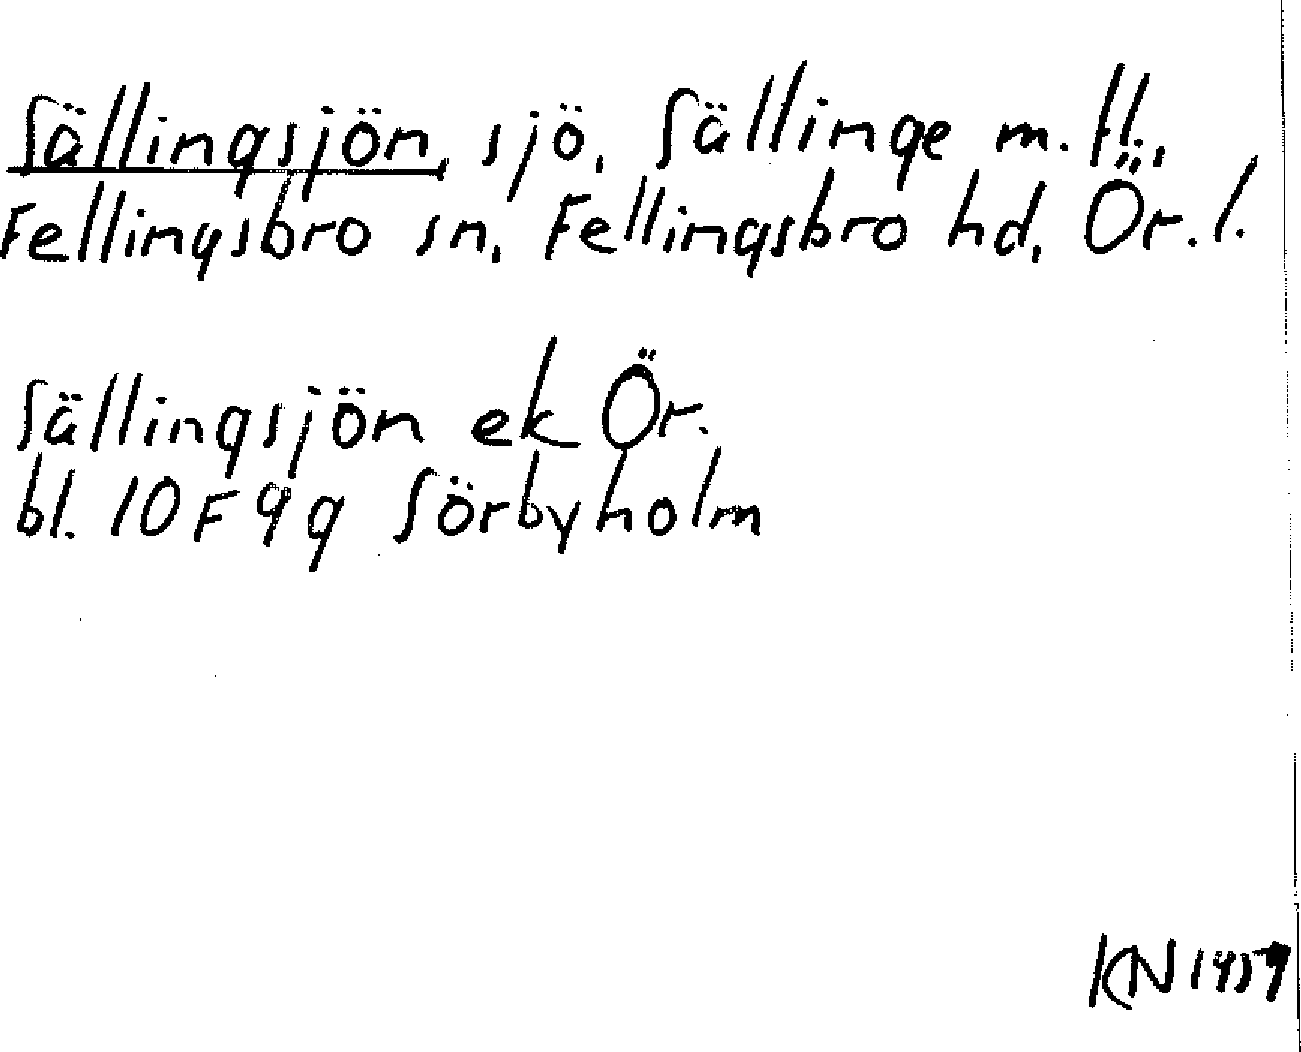 Sällingsjön, sjö, Sällinge m.fl.,
Fellingsbro sn, Fellingsbro hd, Ör.l.
Sällingsjön ek Ör.
bl. 10F9g Sörbyholm
KN